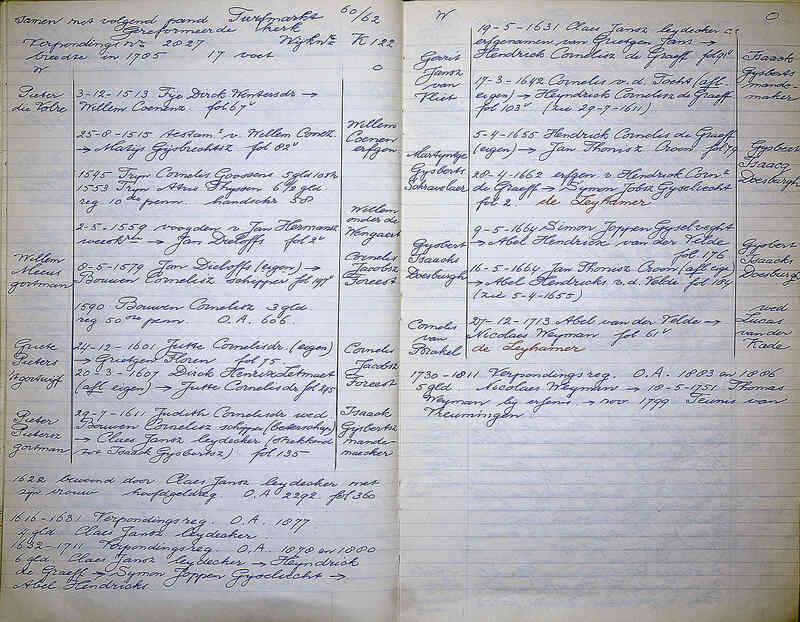 Samen met volgend pand Turfmarkt 60/62
Gereformeerde kerk
Verpondings No 2027 Wijk No K 122
breedte in 1785 17 voet
W O
Pieter die Volre
3-12-1513 Dirck →
Willem Coenenz fol 67v
25-8-1515 Testamt v. Willem Coenez
→ Matijs Gijsbrechtsz fol 82v
Willem Coenen erfgen
1545 Tryn Cornelis Goossens 5 gld
1553 Tryn 6 ½ gld
reg 10de penn. handschr 58
2-5-1559 voogden v Jan Hermansz
→ Jan Dieloffs fol 2v
Willem onder de Wyngaert
Willem Meeus gortman
8-5-1579 Jan Dieloffs (eigen) →
Bouwen Cornelisz schipper fol 197v
Cornelis Jacobsz Foreest
1590 Bouwen Cornelisz 3 gld
reg 50ste penn. O.A. 606.
Griete Pieters
24-12-1601 Jutte Cornelisdr. (eigen)
→ Grietgen Floren fol 75
20-3-1607 Dirck Henricx
(afl eigen) → Jutte Cornelisdr fol 245
Cornelis Jacobsz Foreest
Pieter Pietersz gortman
29-7-1611 Judith Cornelisdr wed
Bouwen Cornelisz schipper
→ Claes Jansz leydecker (strekkend
tot Isaack Gysbertsz) fol 135
Isaack Gysbertsz mande-maecker
1622 bewoond door Claes Jansz leydecker met
zijn vrouw hoofdgeldreg. O.A 2292 fol 360
1616-1631 Verpondingsreg. O.A. 1877
4 gld Claes Jansz leydecker.
1632-1711 Verpondingsreg. O.A. 1878 en 1880
6 gld Claes Jansz leydecker → Heyndrick
de Graeff → Symon Joppen Gyselvecht →
Abel Hendricks
W O
Gerrit Jansz van Vliet
19-5-1631 Claes Jansz leydecker
erfgenamen van Grietgen Jans →
Hendrick Cornelisz de Graeff fol 91v
17-3-1642 Cornelis v.d. Tocht (afl
eigen) → Heyndrick Cornelisz de Graeff
fol 103v (zie 29-7-1611)
Isaack Gysberts mande-maker
Martyntje Gysberts
5-4-1655 Hendrick Cornelis de Graeff
(eigen) → Jan Thonisz Croon fol 79
28-4-1662 erfgen v Hendrick Cornz
de Graeff → Symon Jobsz Gyselvecht
fol 2. de Leyhamer
Gysbert Isaacq Doesburgh
Gysbert Isaacks Doesburgh
9-5-1664 Simon Joppen Gyselveght
→ Abel Hendrick van der Velde
fol 176
16-5-1664 Jan Thonisz Croon (afl eige)
→ Abel Hendricks v.d. Velde fol 184
(zie 5-4-1655)
Gysbert Isaacks Doesburg
Cornelis van Brakel
27-12-1713 Abel van der Velde →
Nicolaes Weyman fol 61v
de Leyhamer
wed Lucas van der Kade
1730-1811 Verpondingsreg. O.A. 1883 en 1886
5 gld Nicolaes Weymans → 18-5-1751 Thomas
Weyman by erfenis → nov 1799 Teunis van
Vreumingen.